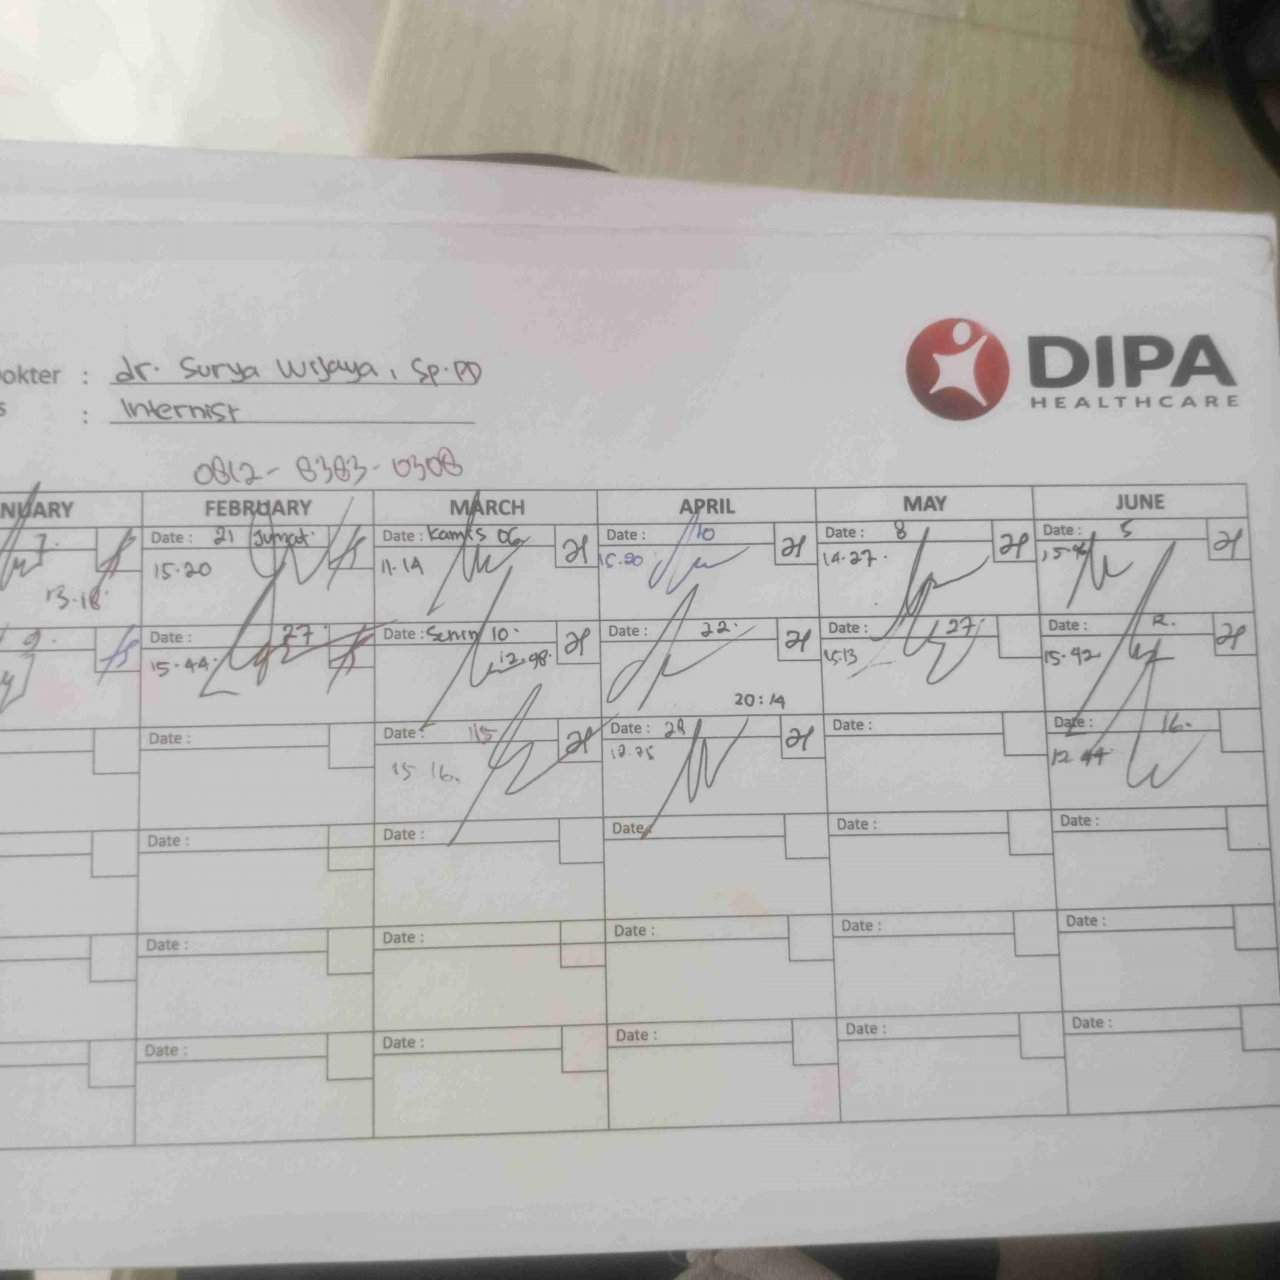 DIPA
HEALTHCARE
okter : dr. Surya Wijaya, Sp.PD
s : Internist
0812-8383-0308
NUARY FEBRUARY MARCH APRIL MAY JUNE
7. Date : 21 Jumat Date : Kamis 06 Date : 10 Date : 8 Date : 5
13.18 15.20 11.14 15.20 14.27
9. Date : 27 Date : Senin 10. Date : 22. Date : 27 Date :
15.44 12.98. 15.13 15.42
20:14
Date : Date : 15 Date : 29 Date : Date : 16.
15.16. 12.44
Date : Date : Date : Date : Date :
Date : Date : Date : Date : Date :
Date : Date : Date : Date : Date :